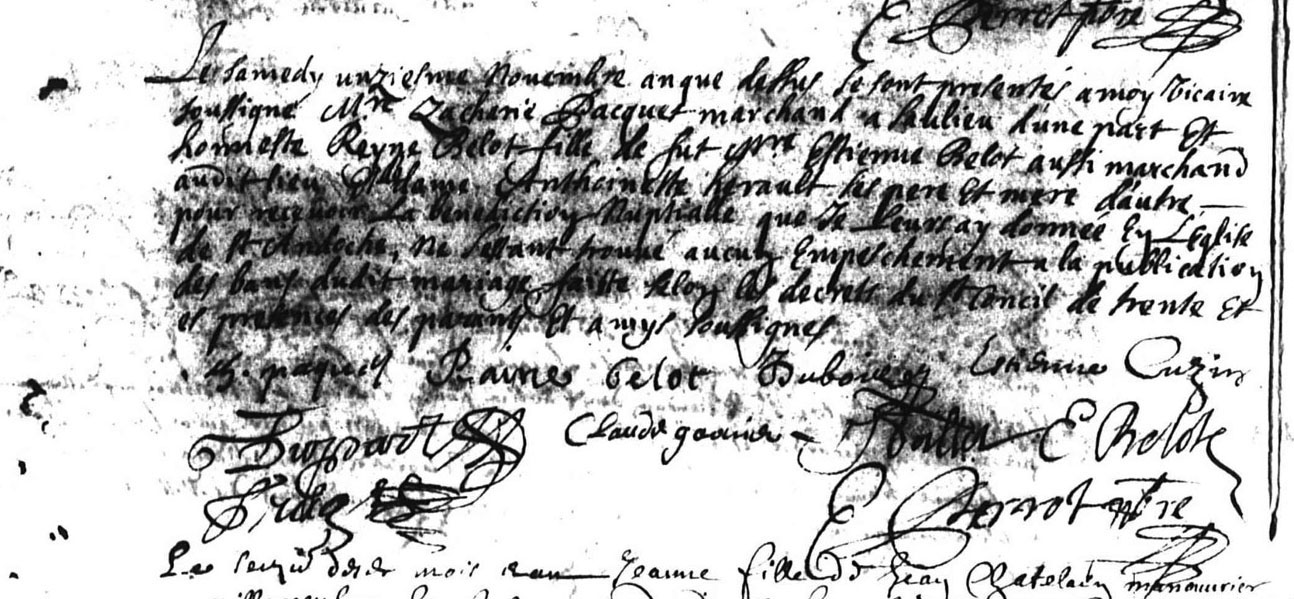 E. Perrot pbre
Le samedy unziesme Novembre an que dessus se sont presentés a moy vicaire
soussigné Mre Zacharie Pacquet marchand a Saulieu d'une part Et
honneste Reyne Belot fille de fut Estienne Belot aussi marchand
audit lieu Et dame Anthoinette herault ses pere Et mere d'autre
pour recevoir la benediction Nuptialle que Je Leur ay donnée En L'Eglise
de St Andoche, Ne s'estant trouvé aucun Empeschement a la publication
des bans dudit mariage faitte selon les decrets du St Concil de trente Et
es presences des parans Et amys soussignes
paquet Raine belot Estienne Cuzin
Claude E Belot
E. Perrot pbre
Le mois Jeanne fille de Jean Chatelain manouvrier